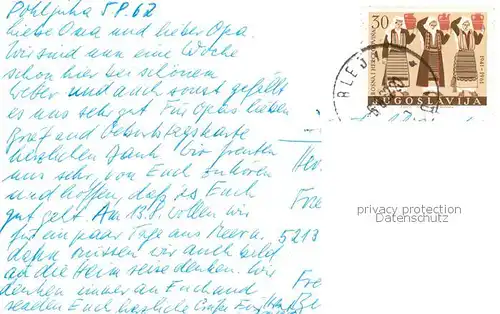 Pohljuka 5.8.62
Liebe Oma und lieber Opa.
Wir sind nun eine Woche
schon hier bei schönem
Wetter und auch sonst gefällt
es uns sehr gut. Für Opas lieben
Brief und Geburtstagskarte
herzlichen Dank. Wir freuten
uns sehr, von Euch zu hören
und hoffen, daß es Euch
gut geht. Am 13.8. wollen wir
für ein paar Tage ans Meer u.
dann müssen wir auch bald
an die Heimreise denken. Wir
denken immer an Euch und
senden Euch herzliche Grüße
30
BOSNA I HERCEGOVINA
1941-1961
JUGOSLAVIJA
BLED
Fre
5213
Fre
privacy protection
Datenschutz